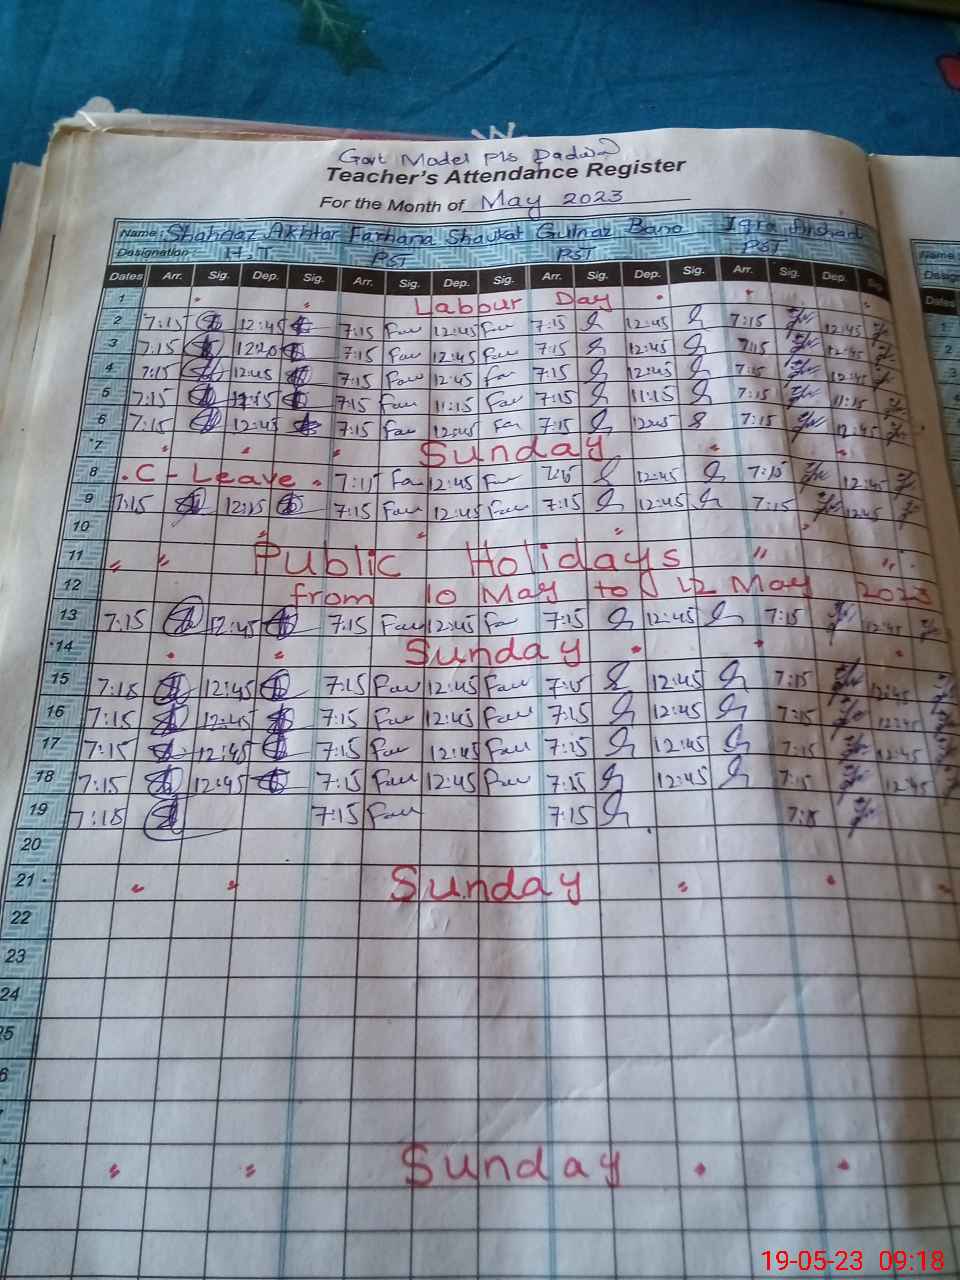 Govt Model P/s
Teacher's Attendance Register
For the Month of May 2023
Name: Shahnaz Akhtar Farhana Shaukat Gulnaz Bano Iqra Arshad
Designation H.T PST PST PST
Dates Arr. Sig. Dep. Sig. Arr. Sig. Dep. Sig. Arr. Sig. Dep. Sig. Arr. Sig. Dep. Name
1 Labour Day
2 7:15 12:45 7:15 Far 12:45 Far 7:15 12:45 7:15 12:45
3 7:15 12:20 7:15 Far 12:45 Far 7:15 12:45 7:15 12:45
4 7:15 12:45 7:15 Far 12:45 Far 7:15 12:45 7:15 12:45
5 7:15 7:15 Far 11:15 Far 7:15 11:15 7:15 11:15
6 7:15 12:45 7:15 Far 12:45 Far 7:15 12:45 7:15 12:45
7 Sunday
8 C - Leave 7:15 Far 12:45 Far 7:15 12:45 7:15 12:45
9 7:15 7:15 Far 12:45 Far 7:15 12:45 7:15 12:45
10
11 " " Public Holidays " "
12 from 10 May to 12 May 2023
13 7:15 12:45 7:15 Far 12:45 Far 7:15 12:45 7:15 12:45
14 Sunday
15 7:18 12:45 7:15 Far 12:45 Far 7:15 12:45 7:15 12:45
16 7:15 12:45 7:15 Far 12:45 Far 7:15 12:45 7:15 12:45
17 7:15 12:45 7:15 Far 12:45 Far 7:15 12:45 7:15 12:45
18 7:15 12:45 7:15 Far 12:45 Far 7:15 12:45 7:15 12:45
19 7:18 7:15 Far 7:15
20
21 Sunday
22
23
24
Sunday
19-05-23 09:18